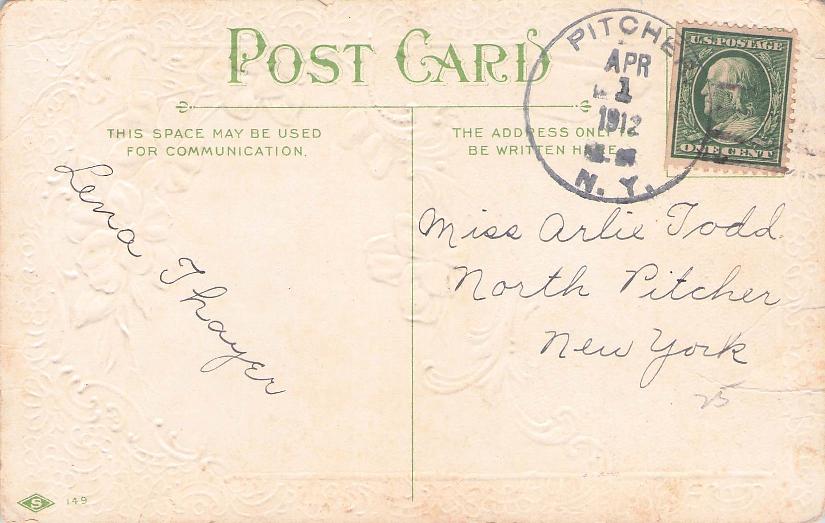 POST CARD
THIS SPACE MAY BE USED
FOR COMMUNICATION.
THE ADDRESS ONLY TO
BE WRITTEN HERE
PITCHER
APR
1
1912
N. Y.
U.S. POSTAGE
ONE CENT
Lena Thayer
Miss Arlie Todd
North Pitcher
New York
25
S
149